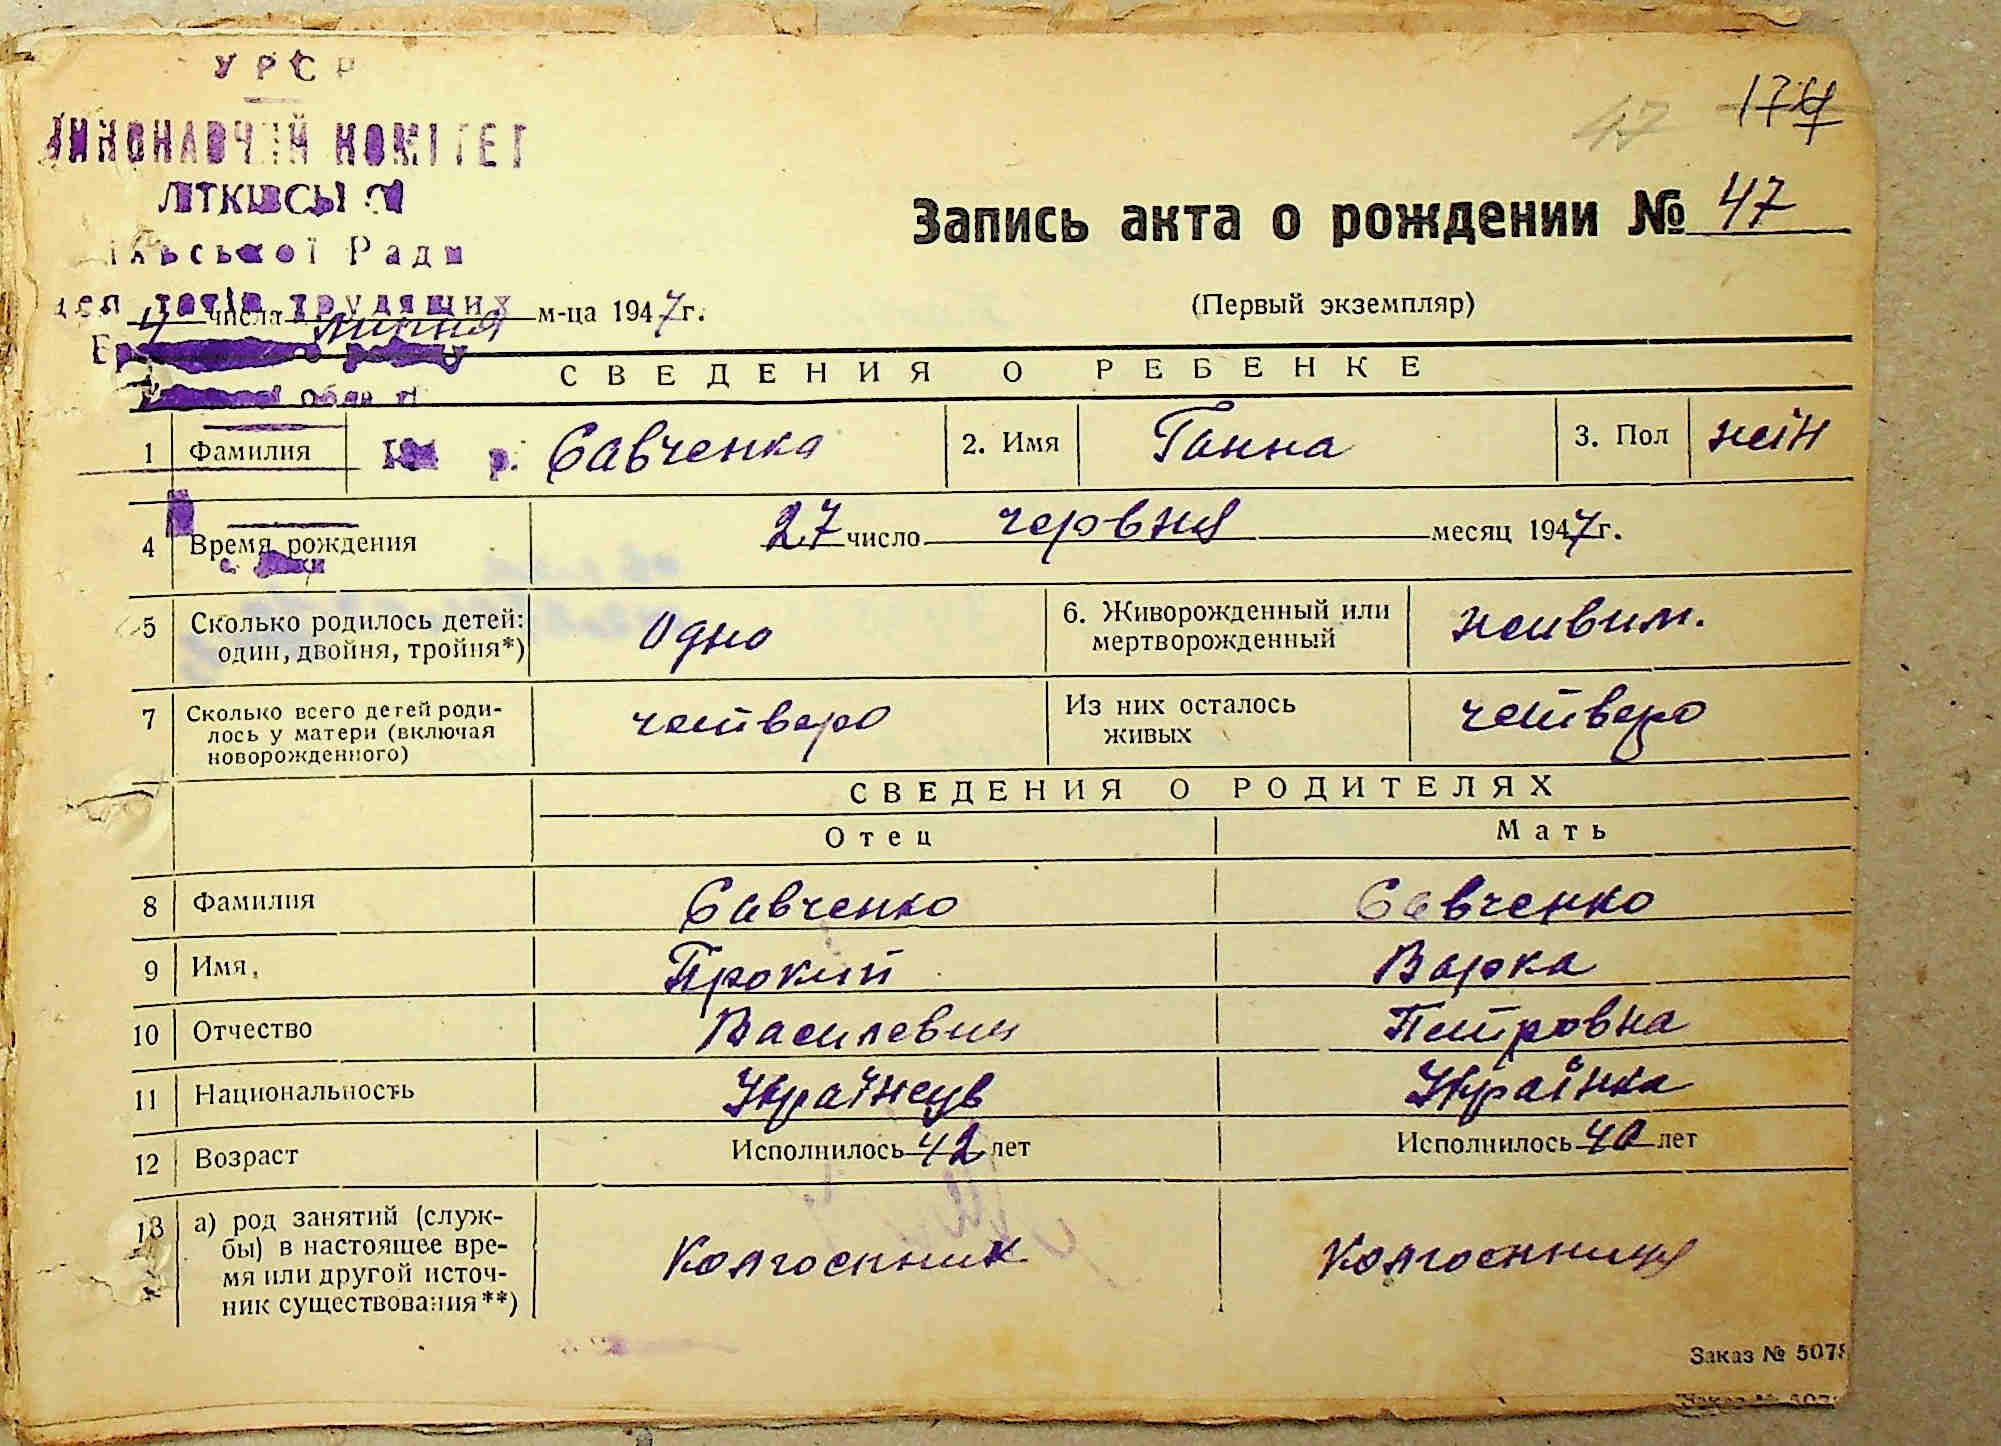 УРСР
47
174
ВИКОНАВЧИЙ КОМІТЕТ
ЛІТКІВСЬКОЇ
Запись акта о рождении № 47
сільської Ради
(Первый экземпляр)
депутатів трудящих
4 числа липня м-ца 1947 г.
області
СВЕДЕНИЯ О РЕБЕНКЕ
1 Фамилия р. Савченко 2. Имя Ганна 3. Пол жін
4 Время рождения 27 число червня месяц 1947 г.
5 Сколько родилось детей: один, двойня, тройня*) Одно 6. Живорожденный или мертворожденный живим.
7 Сколько всего детей роди-
лось у матери (включая
новорожденного) четверо Из них осталось живых четверо
СВЕДЕНИЯ О РОДИТЕЛЯХ
Отец Мать
8 Фамилия Савченко Савченко
9 Имя, Прокіп Варка
10 Отчество Василевич Петровна
11 Национальность Українець Українка
12 Возраст Исполнилось 42 лет Исполнилось 40 лет
13 а) род занятий (служ-
бы) в настоящее вре-
мя или другой источ-
ник существования**) Колгоспник Колгоспниця
Заказ № 5078